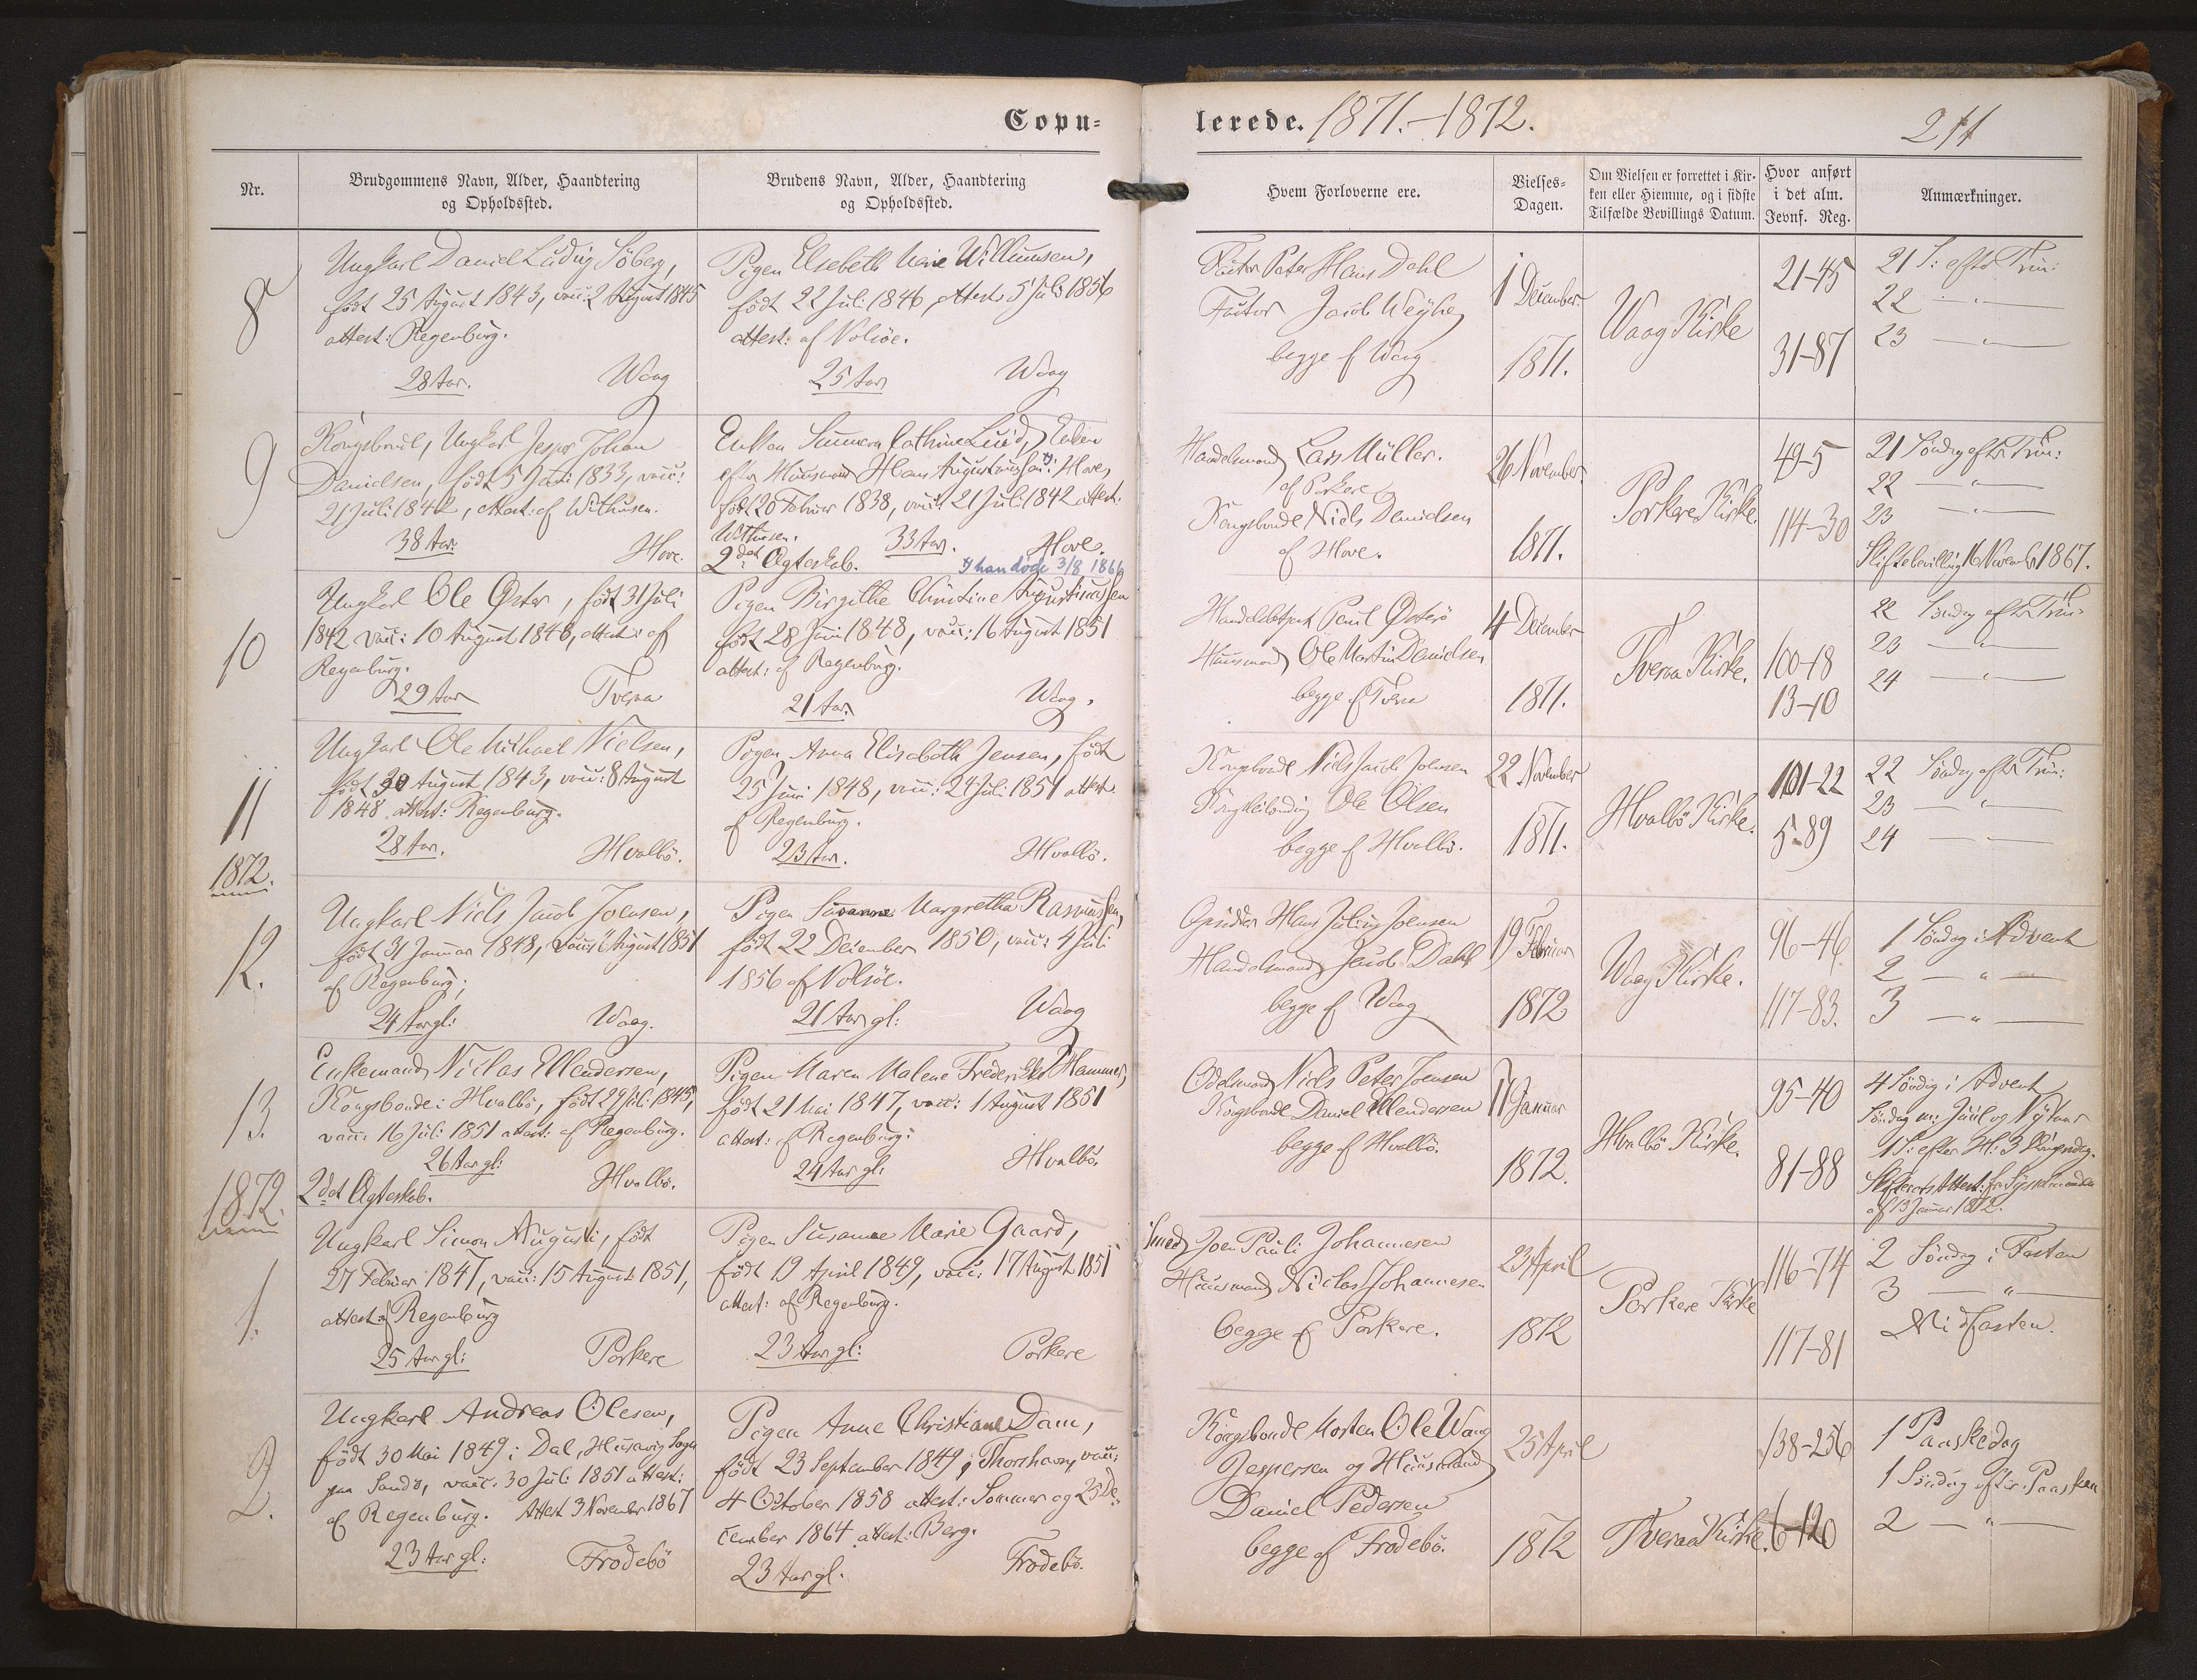 Copu-
lerede. 1871.-1872.
211
Nr.
Brudgommens Navn, Alder, Haandtering
og Opholdssted.
Brudens Navn, Alder, Haandtering
og Opholdssted.
Hvem Forloverne ere.
Vielses-
Dagen.
Om Vielsen er forrettet i Kir-
ken eller Hiemme, og i sidste
Tilfælde Bevillings Datum.
Hvor anført
i det alm.
Jevnf. Reg.
Anmærkninger.
8
Ungkarl Daniel Ludvig Söberg,
født 25 August 1843, vacc: 2 August 1845
attest: Regenburg.
28 Aar. Waag
Pigen Elsebeth Marie Willumsen,
født 22 Juli 1846, attest 5 Juli 1856
attest: af Nolsøe.
25 Aar Waag
Factor Peter Hans Dahl
Factor Jacob Weyhe
begge af Waag
1 December
1871.
Waag Kirke
21-45
31-87
21 S: efter Trin:
22 — " —
23 — " —
9
Kongsbonde, Ungkarl Jesper Johan
Danielsen, født 5 Juni 1833, vacc:
21 Juli 1842, attest: af Withusen.
38 Aar. Hove.
Enken Cathrine Lucid, Enke
efter Huusmand Hans Augustinussen i Hove,
født 20 Februar 1838, vacc: 21 Juli 1842 attest.
Withusen. 33 Aar. Hove.
2det Ægteskab. han døde 3/8 1866
Handelsmand Lars Müller.
af Porkere
Kongsbonde Niels Danielsen
af Hove.
26 November
1871.
Porkere Kirke.
49-5
114-30
21 Søndag efter Trin:
22 — " —
23 — " —
Skiftebevilling 16 November 1867.
10
Ungkarl Ole Øster, født 31 Juli
1842 vacc: 10 August 1848, attest: af
Regenburg.
29 Aar Tveraa
Pigen Birgithe Christine Augustinussen
født 28 Juni 1848, vacc: 16 August 1851
attest: af Regenburg.
21 Aar. Waag.
Handelsbetjent Paul Østerø
Huusmand Ole Martin Danielsen
begge af Tveraa
4 December
1871.
Tveraa Kirke.
100-18
13-10
22 Søndag efter Trin:
23 — " —
24 — " —
11
Ungkarl Ole Michael Nielsen,
født 30 August 1843, vacc: 8 August
1848 attest: Regenburg.
28 Aar. Hvalbö.
Pigen Anna Elisabeth Jensen, født
25 Juni 1848, vacc: 24 Juli 1851 attest.
af Regenburg.
23 Aar. Hvalbö.
Kongsbonde Niels Jacob Joensen
Ole Olsen
begge af Hvalbö.
22 November
1871.
Hvalbö Kirke.
101-22
5-89
22 Søndag efter Trin:
23 — " —
24 — " —
1872.
12.
Ungkarl Niels Jacob Joensen,
født 31 Januar 1848, vacc: August 1851
af Regenburg;
24 Aar gl: Waag.
Pigen Susanne Margretha Rasmussen,
født 22 December 1850, vacc: 4 Juli
1856 af Nolsöe.
21 Aar gl: Waag
Opsidder Hans Julius Joensen
Handelsmand Jacob Dahl
begge af Waag
19 Februar
1872
Waag Kirke.
96-46
117-83.
1 Söndag i Advent
2 — " —
3 — " —
13.
Enkemand Niclas Ellendersen,
Kongsbonde i Hvalbö, født 29 Juli 1845,
vacc: 16 Juli 1851 attest: af Regenburg.
26 Aar gl:
2det Ægteskab. Hvalbö.
Pigen Maren Malene Frederikke Hammer,
født 21 Mai 1847, vacc: 1 August 1851
attest: af Regenburg:
24 Aar gl: Hvalbö.
Odelsmand Niels Peter Joensen
Kongsbonde Daniel Ellendersen
begge af Hvalbö.
17 Januar
1872.
Hvalbö Kirke.
95-40
81-88
4 Söndag i Advent
Söndag m: Juul og Nytaar
1 S: efter H: 3 Kongerdag.
Skifterets Attest: fra Sysselmanden
af 13 Januar 1872.
1872.
1.
Ungkarl Simon Augusti, født
27 Februar 1847, vacc: 15 August 1851,
attest: af Regenburg
25 Aar gl: Porkere
Pigen Susanne Marie Gaard,
født 19 April 1849, vacc: 17 August 1851
attest: af Regenburg.
23 Aar gl: Porkere
Smed Joen Pauli Johannesen
Huusmand Niclas Johannesen
begge af Porkere.
23 April
1872
Porkere Kirke
116-74
117-81
2 Söndag i Fasten
3 — " —
Midfasten.
2.
Ungkarl Andreas Olesen,
født 30 Mai 1849 i Dal, Husavig Sogn
paa Sandö, vacc: 30 Juli 1851 attest:
af Regenburg. Attest 3 November 1867
23 Aar gl: Frodebö
Pigen Anne Christiane Dam,
født 23 September 1849 i Thorshavn, vacc:
4 October 1858 attest: Sommer og 25 De-
cember 1864 attest: Berg.
23 Aar gl. Frodebö.
Kongsbonde Morten Ole Waag
Jespersen og Huusmand
Daniel Pedersen
begge af Frodebö.
25 April
1872
Tveraa Kirke.
138-256
6-120
1 Paaskedag
1 Söndag efter Paasken
2 — " —